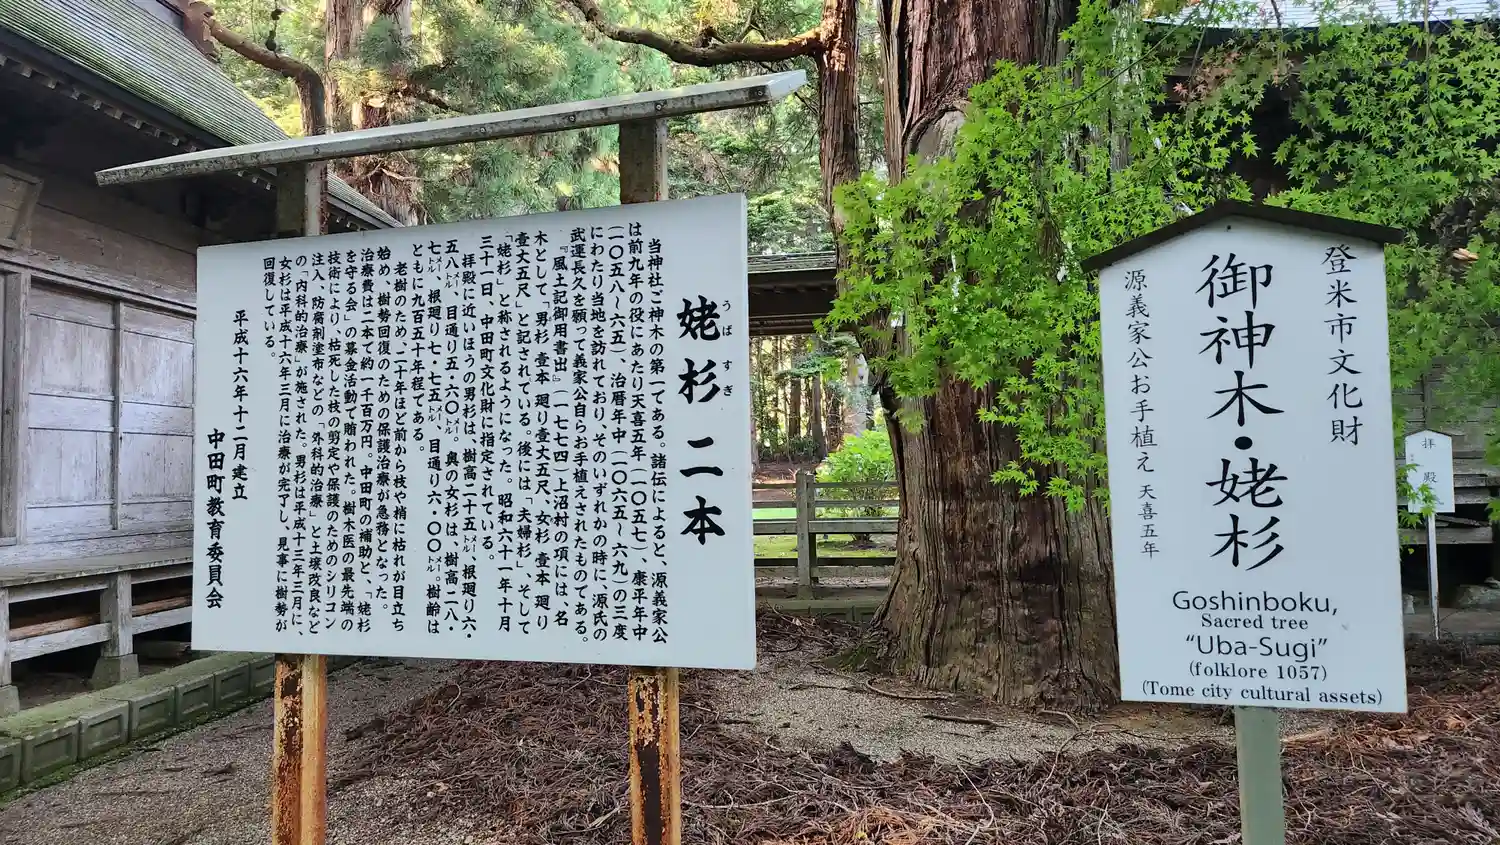 姥杉 二本
うばすぎ
当神社ご神木の第一である。諸伝によると、源義家公
は前九年の役にあたり天喜五年(一〇五七)、康平年中
(一〇五八～六五)、治暦年中(一〇六五～六九)の三度
にわたり当地を訪れており、そのいずれかの時に、源氏の
武運長久を願って義家公自らお手植えされたものである。
『風土記御用書出』(一七七四)上沼村の項には、名
木として「男杉 壹本 廻り壹丈五尺、女杉 壹本 廻り
壹丈五尺」と記されている。後には「夫婦杉」、そして
「姥杉」と称されるようになった。昭和六十一年十月
三十一日、中田町文化財に指定されている。
拝殿に近いほうの男杉は、樹高二十五㍍、根廻り六・
五八㍍、目通り五・六〇㍍。奥の女杉は、樹高二八・
七㍍、根廻り七・七五㍍、目通り六・〇〇㍍。樹齢は
ともに九百五十年程である。
老樹のため、二十年ほど前から枝や梢に枯れが目立ち
始め、樹勢回復のための保護治療が急務となった。
治療費は二本で約一千百万円。中田町の補助と、「姥杉
を守る会」の募金活動で賄われた。樹木医の最先端の
技術により、枯死した枝の剪定や保護のためのシリコン
注入、防腐剤塗布などの「外科的治療」と土壌改良など
の「内科的治療」が施された。男杉は平成十三年三月に、
女杉は平成十六年三月に治療が完了し、見事に樹勢が
回復している。
平成十六年十二月建立
中田町教育委員会
登米市文化財
御神木・姥杉
源義家公お手植え 天喜五年
Goshinboku,
Sacred tree
“Uba-Sugi”
(folklore 1057)
(Tome city cultural assets)
拝殿